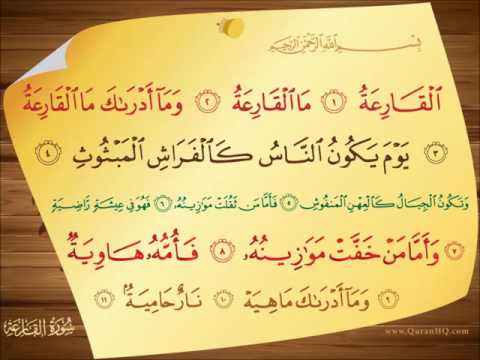 بِسْمِ ٱللَّهِ ٱلرَّحْمَٰنِ ٱلرَّحِيمِ
ٱلْقَارِعَةُ ١ مَا ٱلْقَارِعَةُ ٢ وَمَآ أَدْرَىٰكَ مَا ٱلْقَارِعَةُ
٣ يَوْمَ يَكُونُ ٱلنَّاسُ كَٱلْفَرَاشِ ٱلْمَبْثُوثِ ٤
وَتَكُونُ ٱلْجِبَالُ كَٱلْعِهْنِ ٱلْمَنفُوشِ ٥ فَأَمَّا مَن ثَقُلَتْ مَوَٰزِينُهُۥ ٦ فَهُوَ فِى عِيشَةٍ رَّاضِيَةٍ
٧ وَأَمَّا مَنْ خَفَّتْ مَوَٰزِينُهُۥ ٨ فَأُمُّهُۥ هَاوِيَةٌ
٩ وَمَآ أَدْرَىٰكَ مَا هِيَهْ ١٠ نَارٌ حَامِيَةٌۢ ١١
سُورَةُ القَارِعَةِ
www.QuranHQ.com